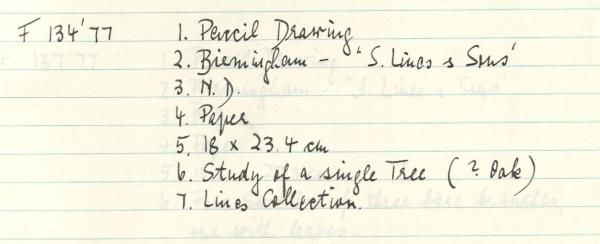 F 134'77 1. Pencil Drawing
2. Birmingham - 'S. Lines & Sons'
3. N.D.
4. Paper
5. 18 x 23.4 cm
6. Study of a single Tree (? Oak)
7. Lines Collection.